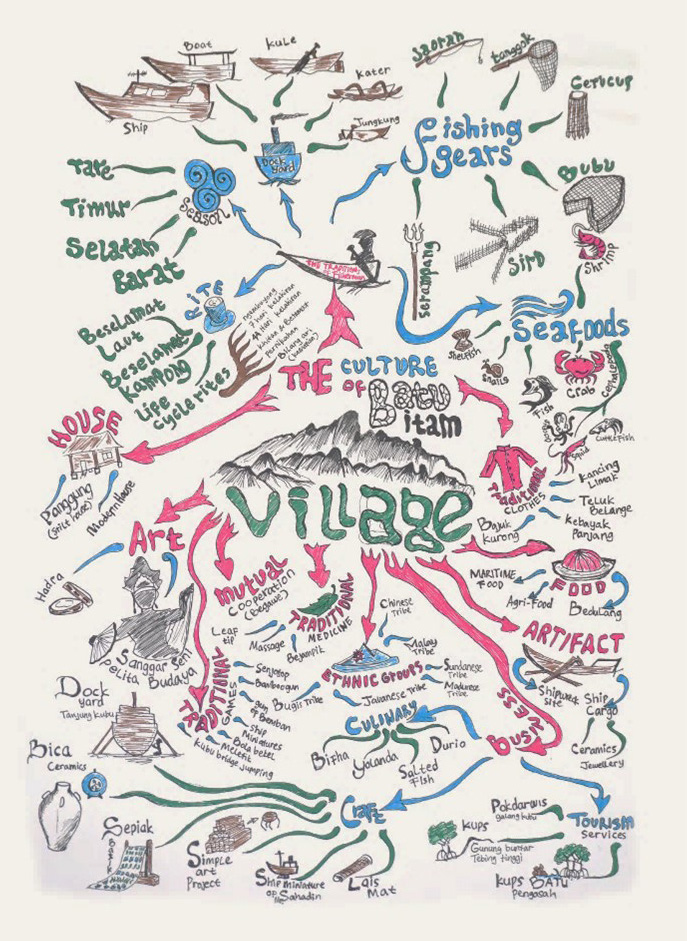 Boat
Kule
Ship
Kater
Jungkung
Dock yard
Saoran
tanggok
Gerucup
fishing
gears
Bubu
Shrimp
Sird
Serampang
Tare
Timur
Selatan
Barat
Season
RITE
Beselamat
Laut
Beselamat
Kampong
Life
cycle rites
7 hari kelahiran
44 Hari kelahiran
Pernikahan
Seafoods
Shelfish
Snails
Fish
Crab
Cephalopods
Squid
Cuttlefish
THE CULTURE
OF Batu
itam
Village
HOUSE
Panggung
(stilt house)
Modern House
Traditional
CLOTHES
Kancing
Limak
Teluk
Belange
Kebayak
Panjang
Bajuk
kurong
Art
Hadra
Sanggar Seni
Pelita Budaya
MUTUAL
Cooperation
(Begawe)
TRADITIONAL
MEDICINE
Leaf
tip
Massage
Bejampik
FOOD
MARITIME
FOOD
Agri-Food
Bedulang
ARTIFACT
Shipwreck
site
Ship
Cargo
Ceramics
Jewellery
ETHNIC GROUPS
Chinese
Tribe
Malay
Tribe
Sundanese
Tribe
Madurese
Tribe
Javanese Tribe
Bugis Tribe
TRADITIONAL
GAMES
Ship
Miniatures
Bola bekel
Kubu bridge jumping
BUSINESS
CULINARY
Bifha
Yolanda
Salted
Fish
Durio
Dock
yard
Tanjung Kubu
Bica
Ceramics
Sepiak
Batik
Simple
art
Project
Ship miniature
Sahadin
Lais
Mat
Craft
TOURISM
Services
Pokdarwis
KUPS
Gunung buntar
Tebing tinggi
KUPS BATU
Pengasah